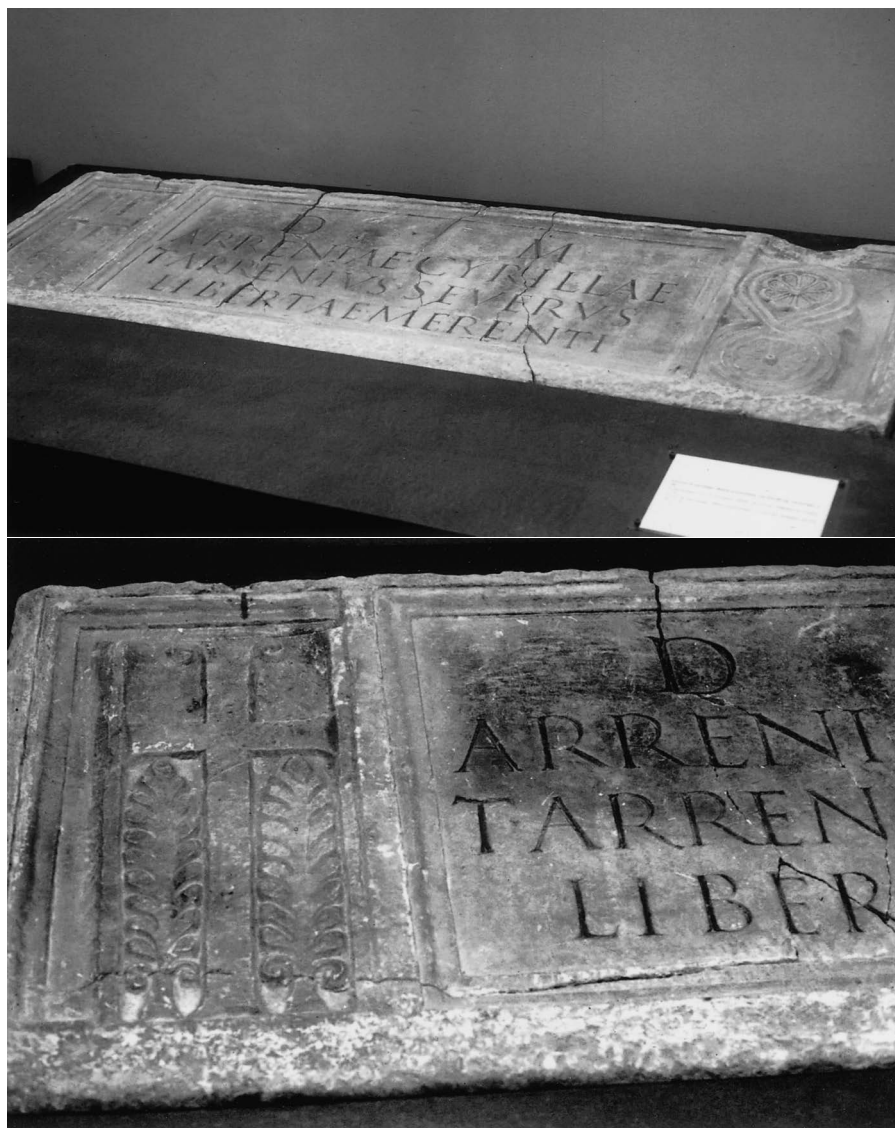 D M
ARRENIAE CYRILLAE
T ARRENIVS SEVERVS
LIBERTAE MERENTI
D
ARRENI
T ARREN
LIBER